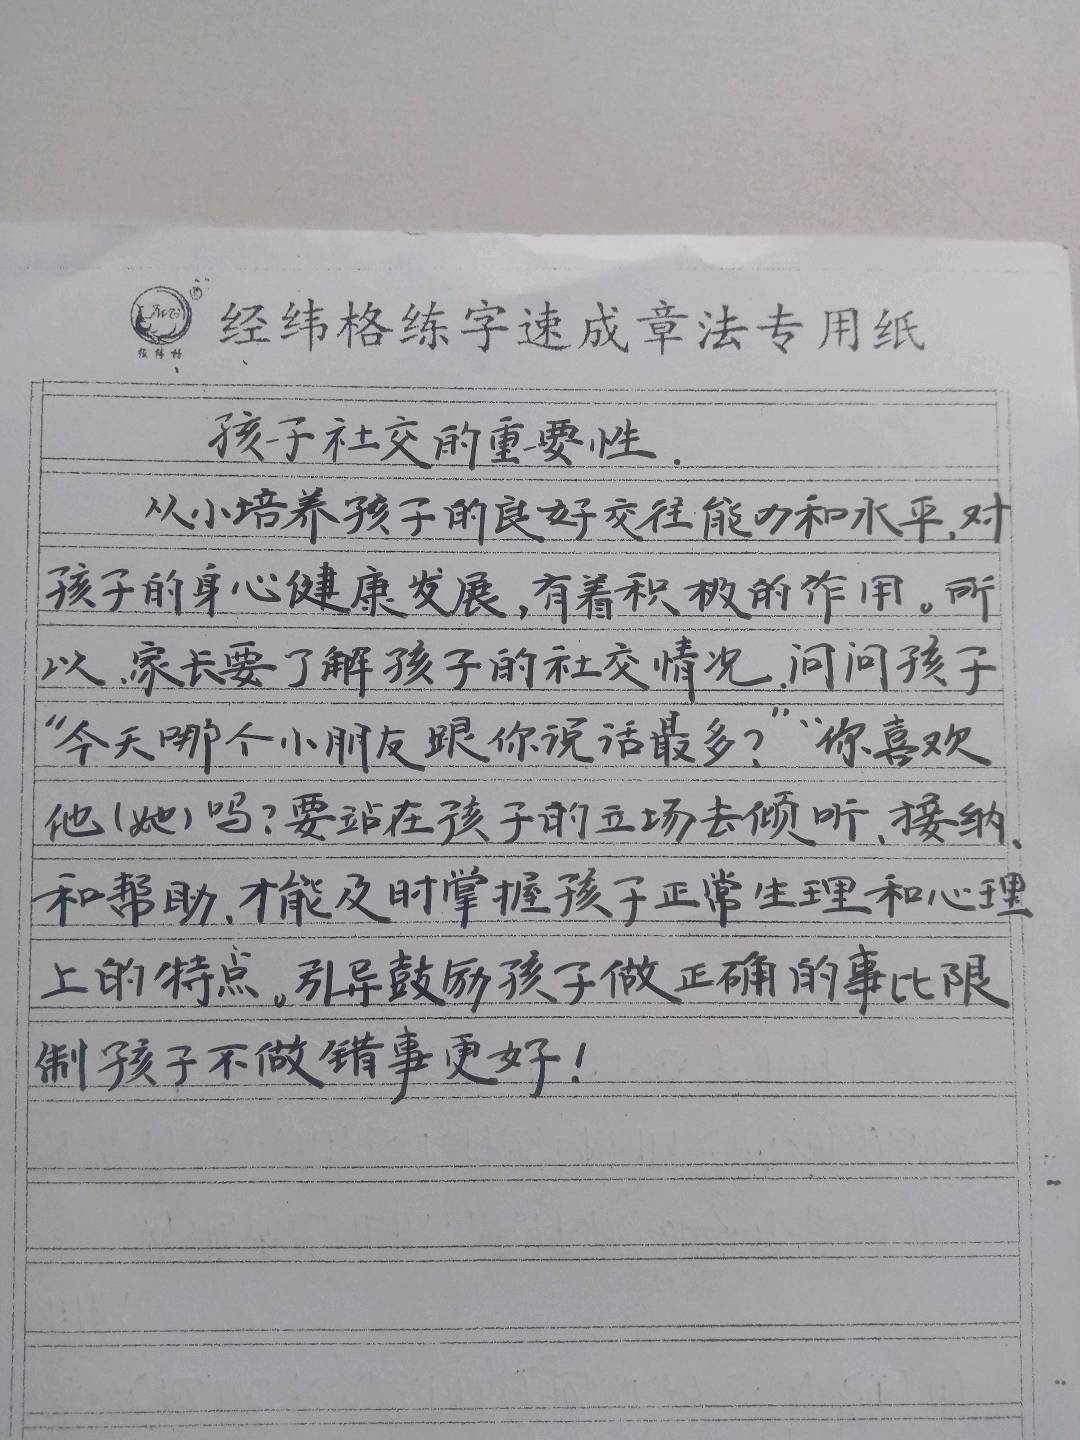 JWG
经纬格
经纬格练字速成章法专用纸
孩子社交的重要性.
从小培养孩子的良好交往能力和水平,对
孩子的身心健康发展,有着积极的作用。所
以、家长要了解孩子的社交情况、问问孩子
“今天哪个小朋友跟你说话最多?”“你喜欢
他(她)吗?要站在孩子的立场去倾听、接纳、
和帮助、才能及时掌握孩子正常生理和心理
上的特点。引导鼓励孩子做正确的事比限
制孩子不做错事更好!